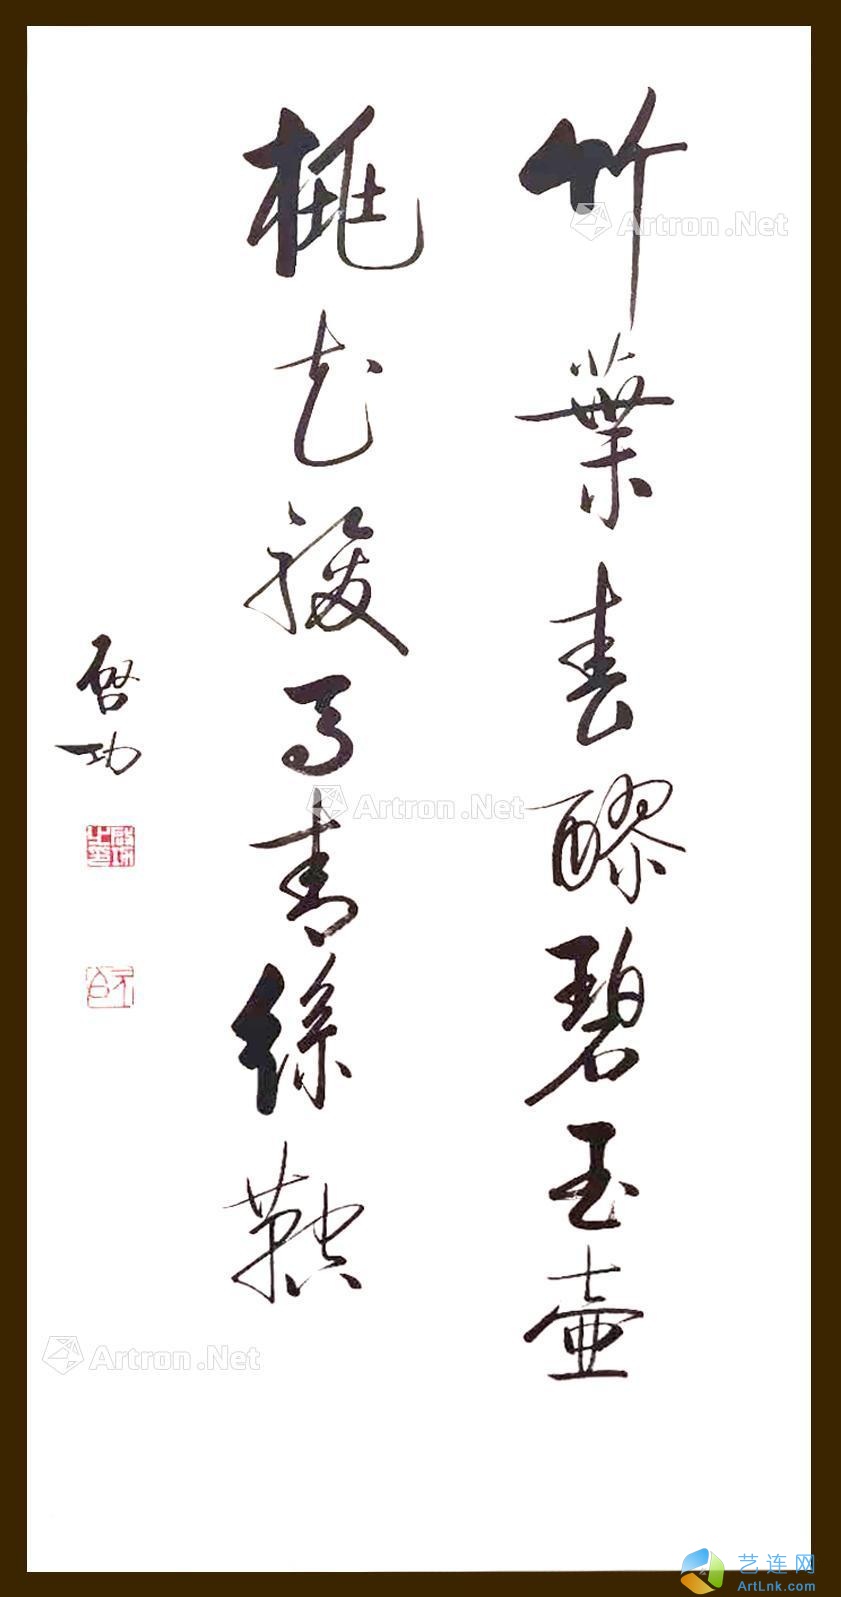 竹葉春醪碧玉壺
桃花駿馬青絲鞚
啓功
啓功之印
元白
Artron.Net
Artron.Net
Artron.Net
艺连网
ArtLnk.com